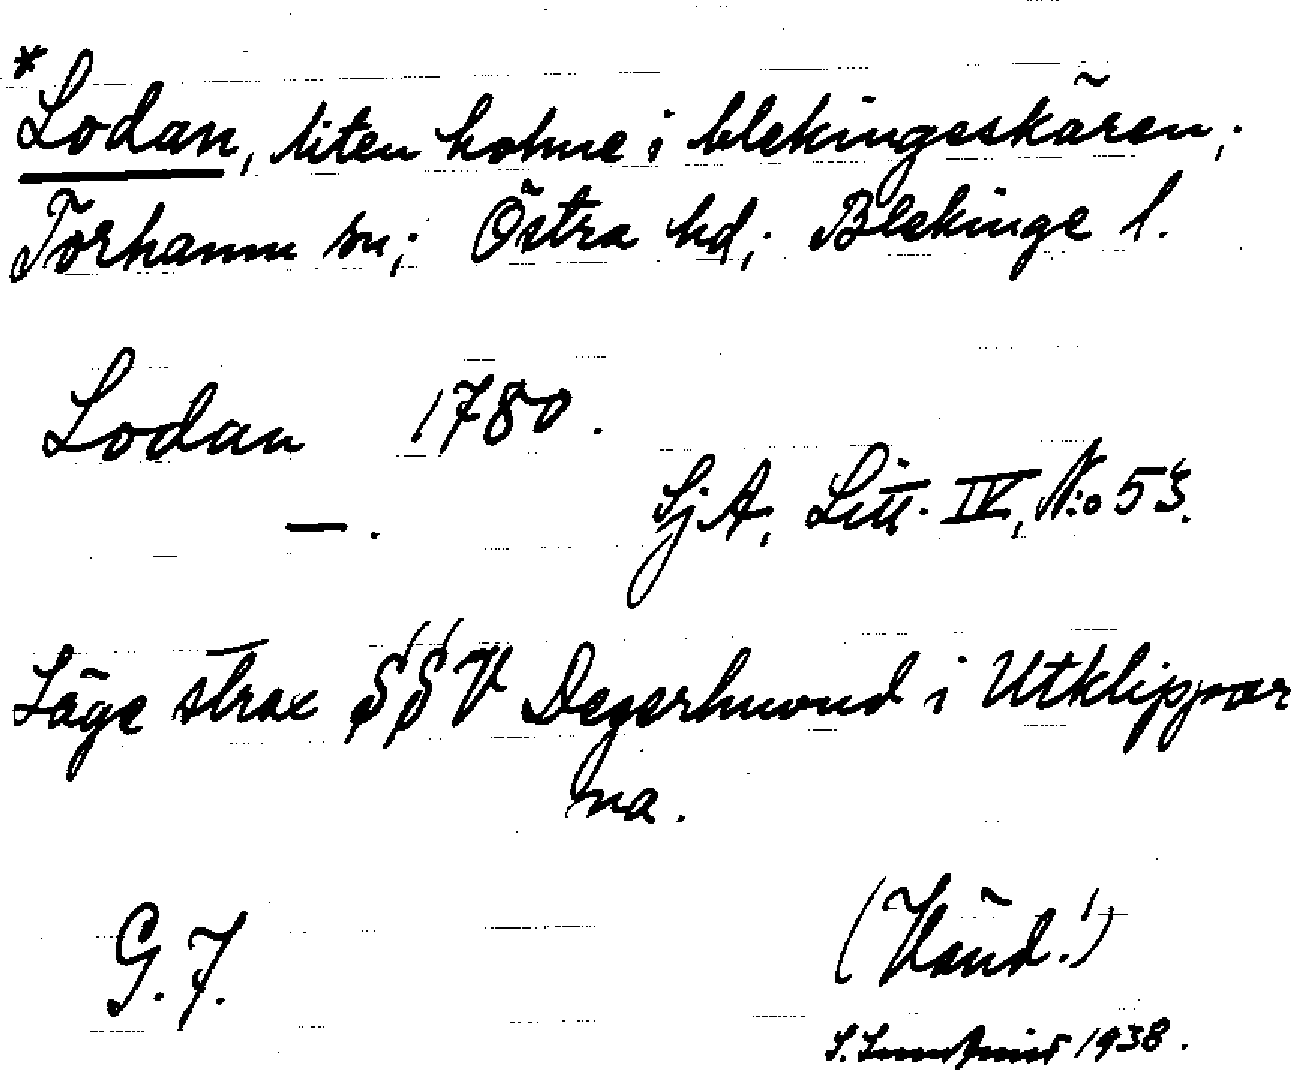 *Lodan, liten holme i blekingeskären;
Torhamn sn; Östra hd; Blekinge l.
Lodan 1780.
— . SjA, Litt. IV, N:o 53.
Läge strax SSV Degerhuvud i Utklippor
na.
G. F. (Vänd!)
1938.